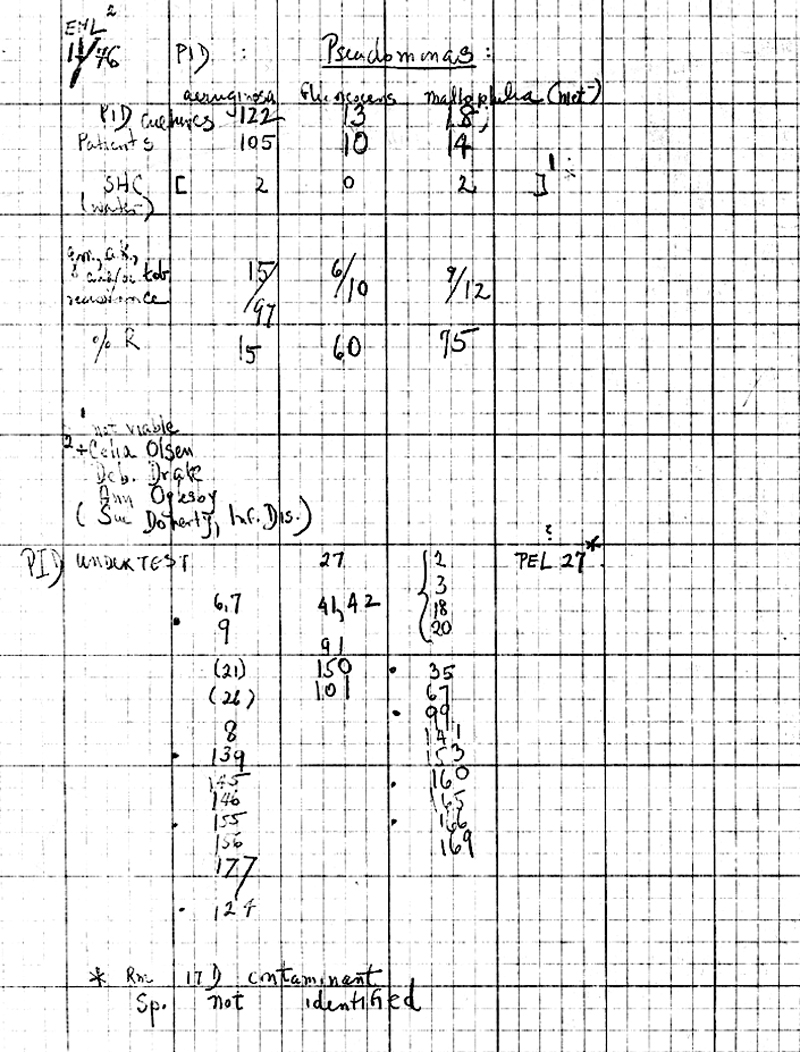 EML 2
11/76 PID : Pseudominas :
aeruginosa fluorescens maltophilia (met-)
PID cultures 122 13 18;
Patients 105 10 14
SHC [ 2 0 2 ] 1
(water)
gm, ak,
& and/or tob 15/97 6/10 9/12
resistance
% R 15 60 75
1 not viable
2 + Celia Olsen
Deb. Drake
Ann Oglesby
(Sue Doherty, Inf. Dis.)
PID UNDER TEST 27 { 2 PEL 27*
3
6,7 41,42 18
• 9 20
91
(21) 150 • 35
(26) 101 67
• 99
8 141
• 139 153
145 • 160
146 165
• 155 • 166
156 169
177
• 124
* Rm 17D contaminant
Sp. not identified